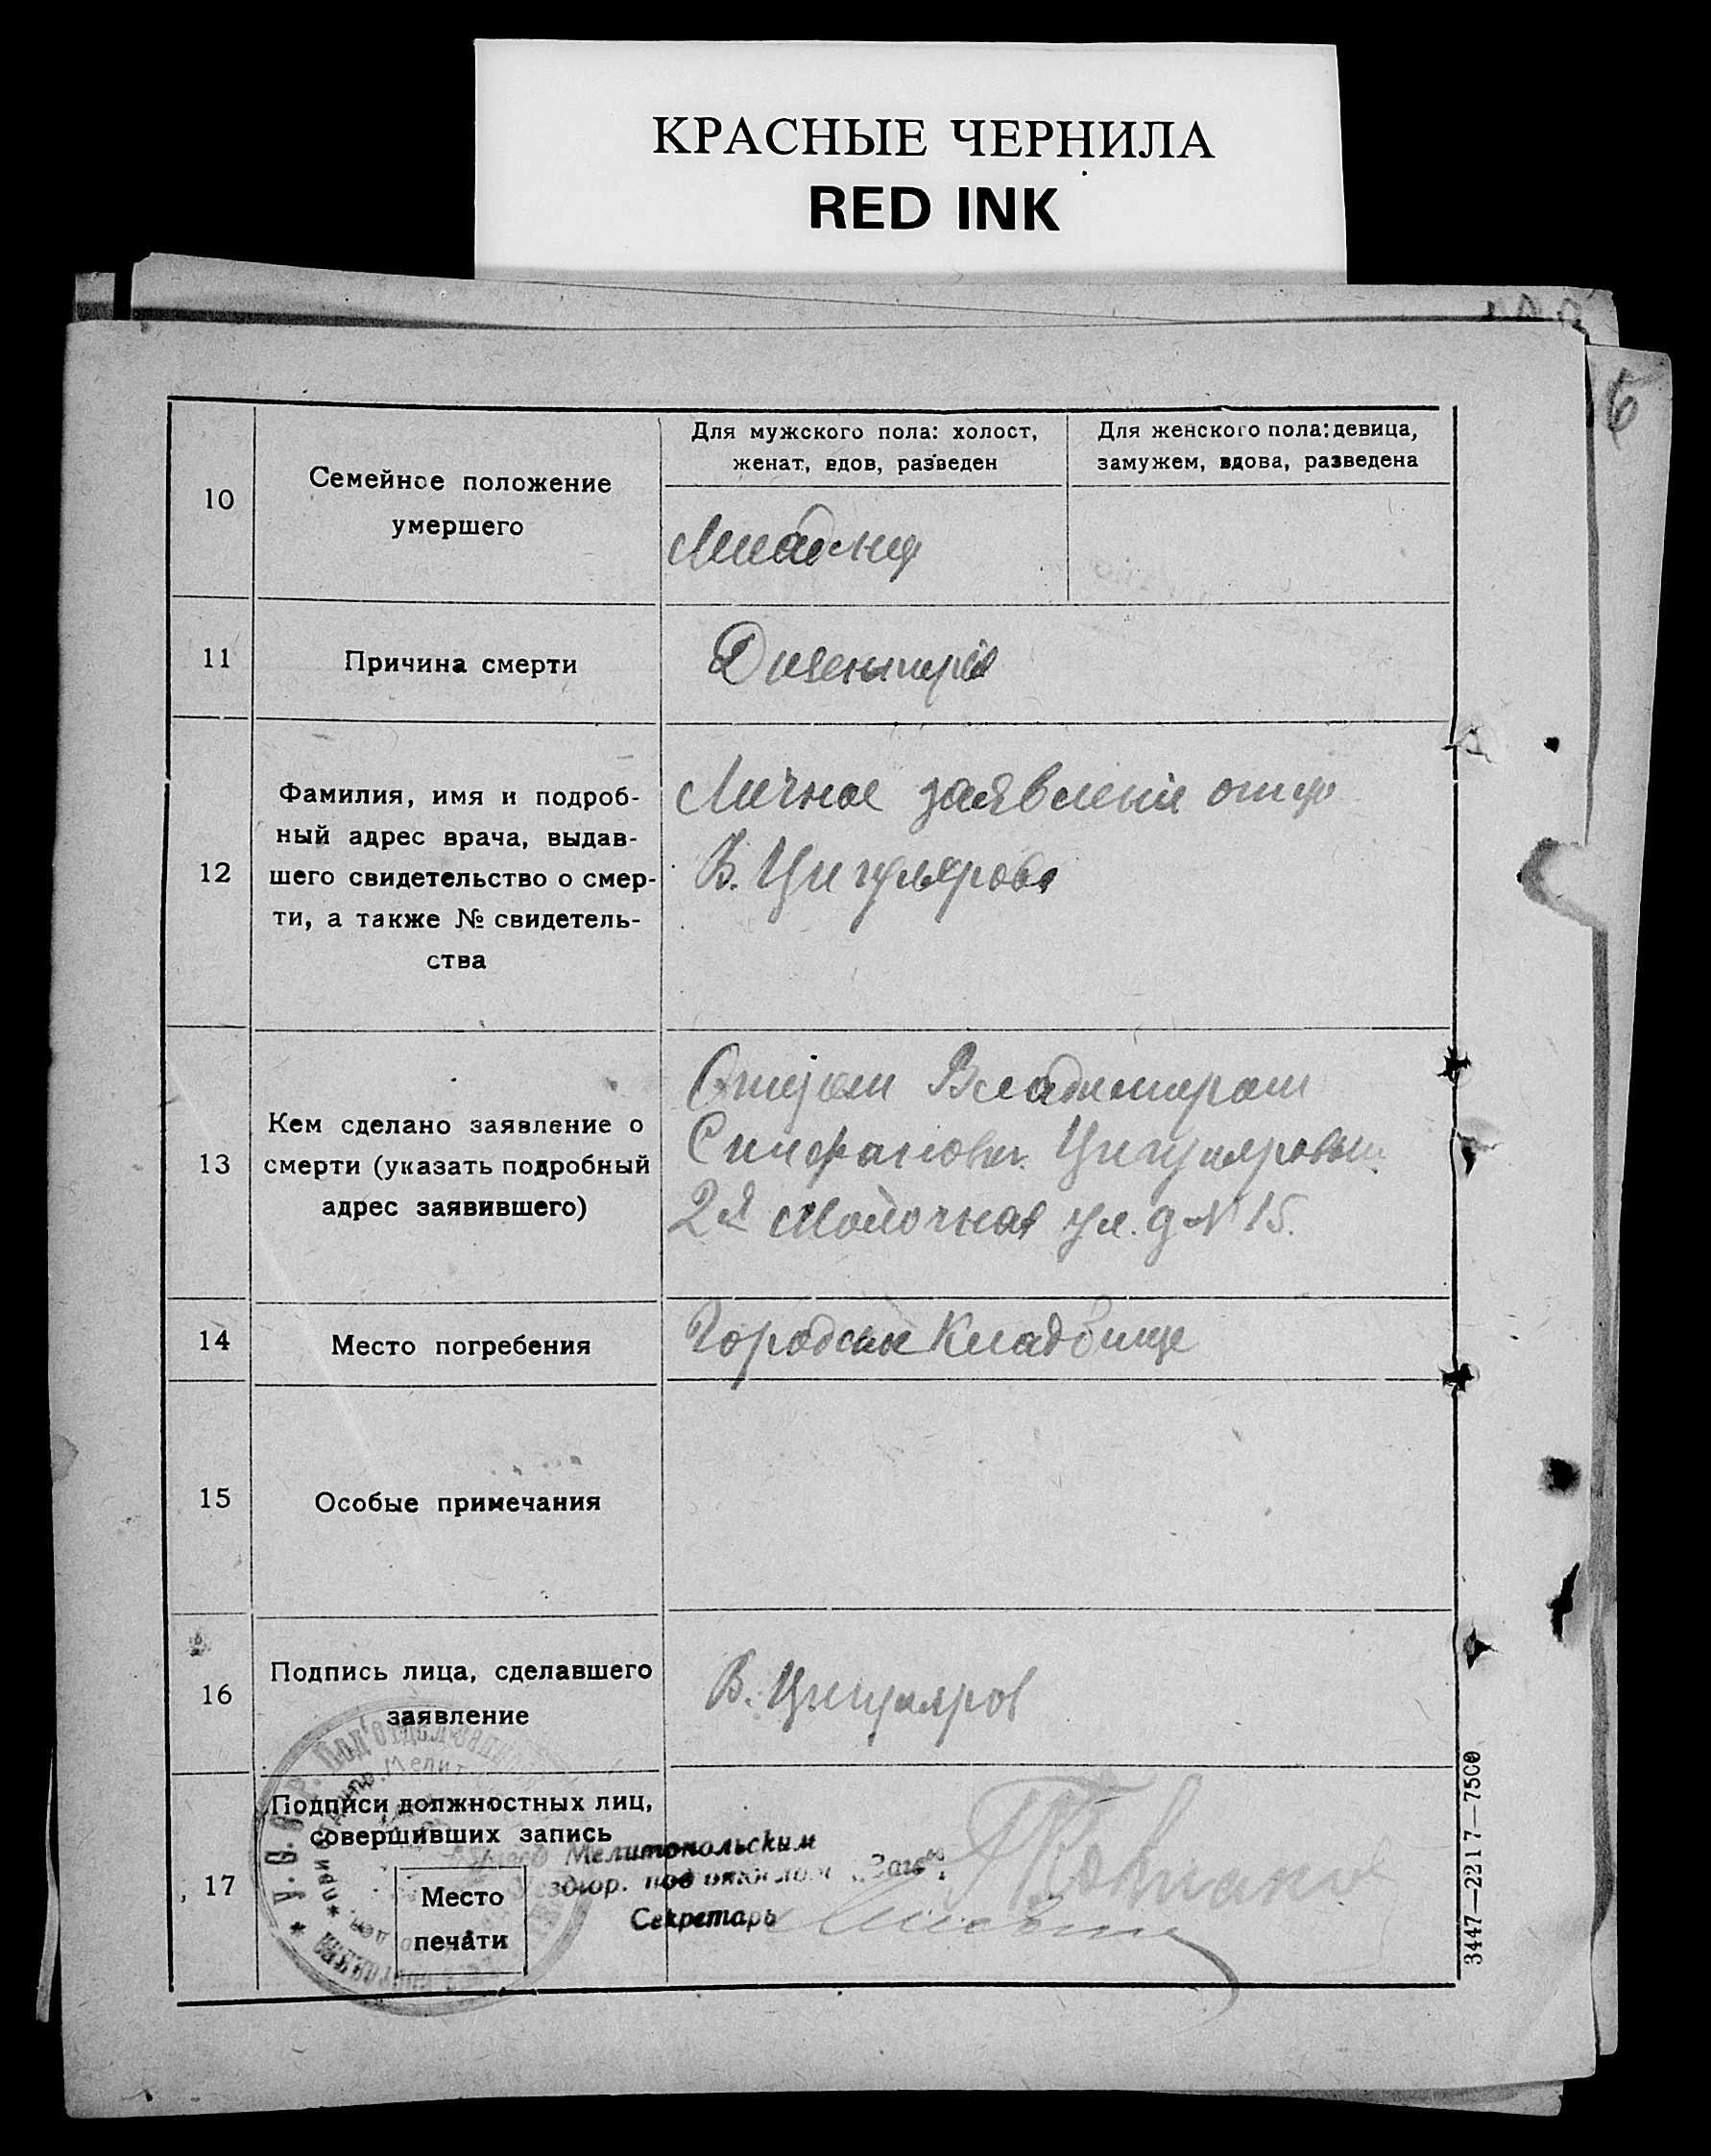 КРАСНЫЕ ЧЕРНИЛА
RED INK
6
10
Семейное положение
умершего
Для мужского пола: холост,
женат, вдов, разведен
Для женского пола: девица,
замужем, вдова, разведена
Младенец
11
Причина смерти
Дизентерия
12
Фамилия, имя и подроб-
ный адрес врача, выдав-
шего свидетельство о смер-
ти, а также № свидетель-
ства
Личное заявление отца
В. Цигулярова
13
Кем сделано заявление о
смерти (указать подробный
адрес заявившего)
Отцом Владимиром
Цигуляровым
2я Молочная ул. д № 15.
14
Место погребения
Городское Кладбище
15
Особые примечания
16
Подпись лица, сделавшего
заявление
В. Цигуляров
17
Подписи должностных лиц,
совершивших запись
Место
печати
Мелитопольским
под
Секретарь
3447—2217—7500